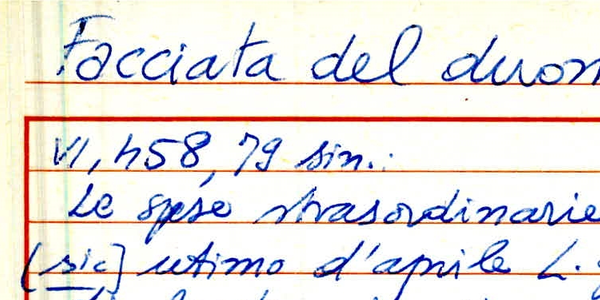 Facciata del duom
VI, 458, 79 sin.:
Le spese strasordinarie
[sic] utimo d'aprile L.